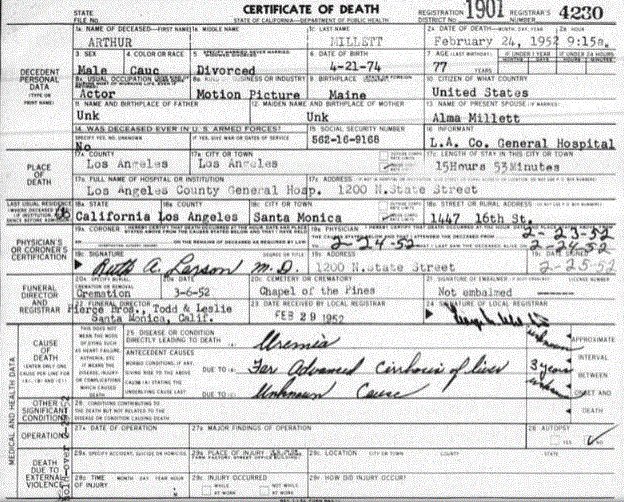 STATE FILE NO.
CERTIFICATE OF DEATH
STATE OF CALIFORNIA—DEPARTMENT OF PUBLIC HEALTH
REGISTRATION DISTRICT NO. 1901
REGISTRAR'S NUMBER 4230
DECEDENT PERSONAL DATA (TYPE OR PRINT NAME)
1A. NAME OF DECEASED—FIRST NAME
1B. MIDDLE NAME
1C. LAST NAME
2A. DATE OF DEATH—MONTH, DAY, YEAR
2B. HOUR
ARTHUR MILLETT February 24, 1952 9:15a.
3. SEX
4. COLOR OR RACE
6. DATE OF BIRTH
7. AGE (LAST BIRTHDAY)
IF UNDER 1 YEAR
IF UNDER 24 HOURS
Male Cauc Divorced 4-21-74 77 YEARS
8A. USUAL OCCUPATION
8B. KIND OF BUSINESS OR INDUSTRY
9. BIRTHPLACE
10. CITIZEN OF WHAT COUNTRY
Actor Motion Picture Maine United States
11. NAME AND BIRTHPLACE OF FATHER
12. MAIDEN NAME AND BIRTHPLACE OF MOTHER
13. NAME OF PRESENT SPOUSE (IF MARRIED)
Unk Unk Alma Millett
14. WAS DECEASED EVER IN U.S. ARMED FORCES?
SPECIFY YES, NO, UNKNOWN
IF YES, GIVE WAR OR DATES OF SERVICE
15. SOCIAL SECURITY NUMBER
16. INFORMANT
No 562-16-9168 L.A. Co. General Hospital
PLACE OF DEATH
17A. COUNTY
17B. CITY OR TOWN
17C. LENGTH OF STAY IN THIS CITY OR TOWN
Los Angeles Los Angeles 15Hours 53Minutes
17D. FULL NAME OF HOSPITAL OR INSTITUTION
17E. ADDRESS
Los Angeles County General Hosp. 1200 N.State Street
LAST USUAL RESIDENCE
18A. STATE
18B. COUNTY
18C. CITY OR TOWN
18D. STREET OR RURAL ADDRESS
California Los Angeles Santa Monica 1447 16th St.
PHYSICIAN'S OR CORONER'S CERTIFICATION
19A. CORONER
19B. PHYSICIAN
2-23-52
2-24-52 2-24-52
19C. SIGNATURE
DEGREE OR TITLE
19D. ADDRESS
19E. DATE SIGNED
Ruth A. Larson M.D. 1200 N.state Street 2-25-52
FUNERAL DIRECTOR AND REGISTRAR
CREMATION OR REMOVAL
20B. DATE
20C. CEMETERY OR CREMATORY
21. SIGNATURE OF EMBALMER
Cremation 3-6-52 Chapel of the Pines Not embalmed
22. FUNERAL DIRECTOR
23. DATE RECEIVED BY LOCAL REGISTRAR
24. SIGNATURE OF LOCAL REGISTRAR
Pierce Bros., Todd & Leslie
Santa Monica, Calif.
FEB 29 1952
MEDICAL AND HEALTH DATA
CAUSE OF DEATH
(ENTER ONLY ONE CAUSE PER LINE FOR (A), (B), AND (C))
THIS DOES NOT MEAN THE MODE OF DYING SUCH AS HEART FAILURE, ASTHENIA, ETC. IT MEANS THE DISEASE, INJURY, OR COMPLICATIONS WHICH CAUSED DEATH
25. DISEASE OR CONDITION DIRECTLY LEADING TO DEATH (A) Uremia unknown
ANTECEDENT CAUSES
MORBID CONDITIONS, IF ANY, GIVING RISE TO THE ABOVE CAUSE (A) STATING THE UNDERLYING CAUSE LAST
DUE TO (B) Far Advanced Cirrhosis of liver 3 years
DUE TO (C) Unknown Cause unkn
APPROXIMATE INTERVAL BETWEEN ONSET AND DEATH
OTHER SIGNIFICANT CONDITIONS
26. CONDITIONS CONTRIBUTING TO THE DEATH BUT NOT RELATED TO THE DISEASE OR CONDITION CAUSING DEATH
OPERATIONS
27A. DATE OF OPERATION
27B. MAJOR FINDINGS OF OPERATION
28. AUTOPSY
YES NO
DEATH DUE TO EXTERNAL VIOLENCE
29A. SPECIFY ACCIDENT, SUICIDE OR HOMICIDE
29B. PLACE OF INJURY
29C. LOCATION CITY OR TOWN COUNTY STATE
29D. TIME OF INJURY MONTH DAY YEAR HOUR
29E. INJURY OCCURRED
WHILE AT WORK
NOT WHILE AT WORK
29F. HOW DID INJURY OCCUR?